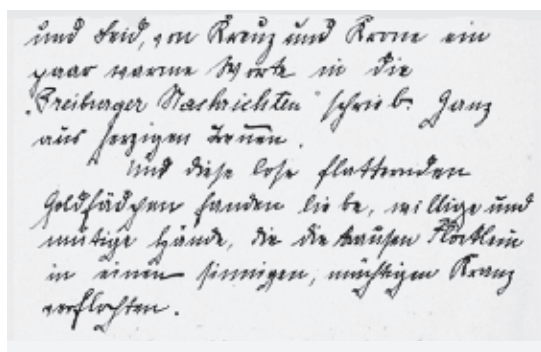 und Leid, von Kreuz und Krone ein
paar warme Worte in die
„Freiburger Nachrichten“ schrieb. Ganz
aus herzigen Treuen.
Und diese lose flatternden
Goldfädchen fanden liebe, willige und
mutige Hände, die die
in einen sinnigen, mächtigen Kranz
verflochten.